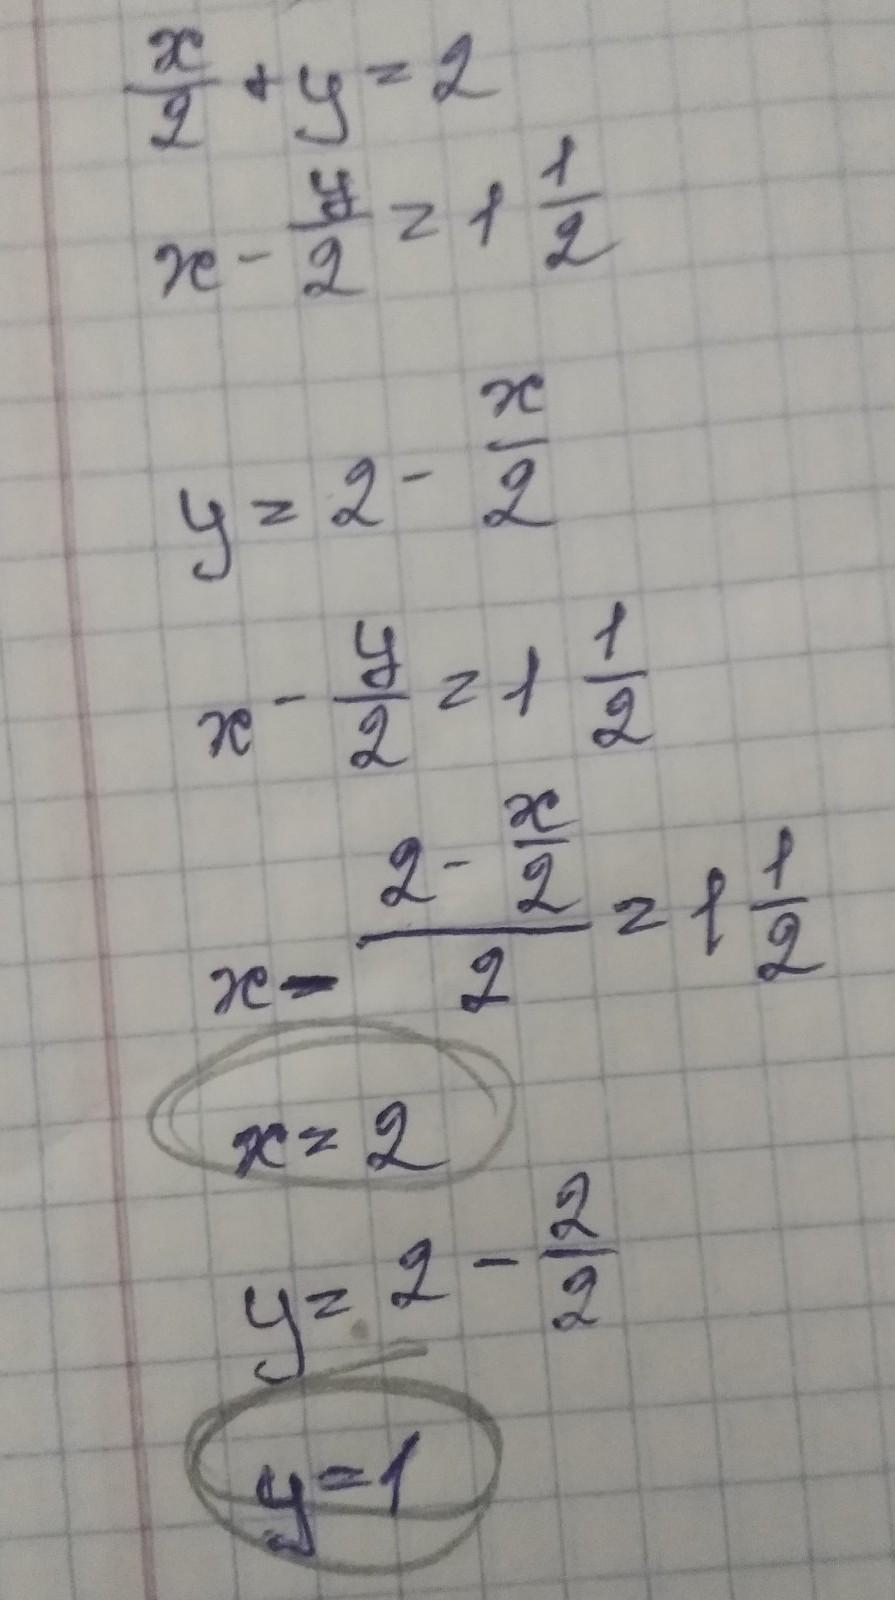 x/2 + y = 2
x - y/2 = 1 1/2
y = 2 - x/2
x - y/2 = 1 1/2
x - (2 - x/2)/2 = 1 1/2
x = 2
y = 2 - 2/2
y = 1